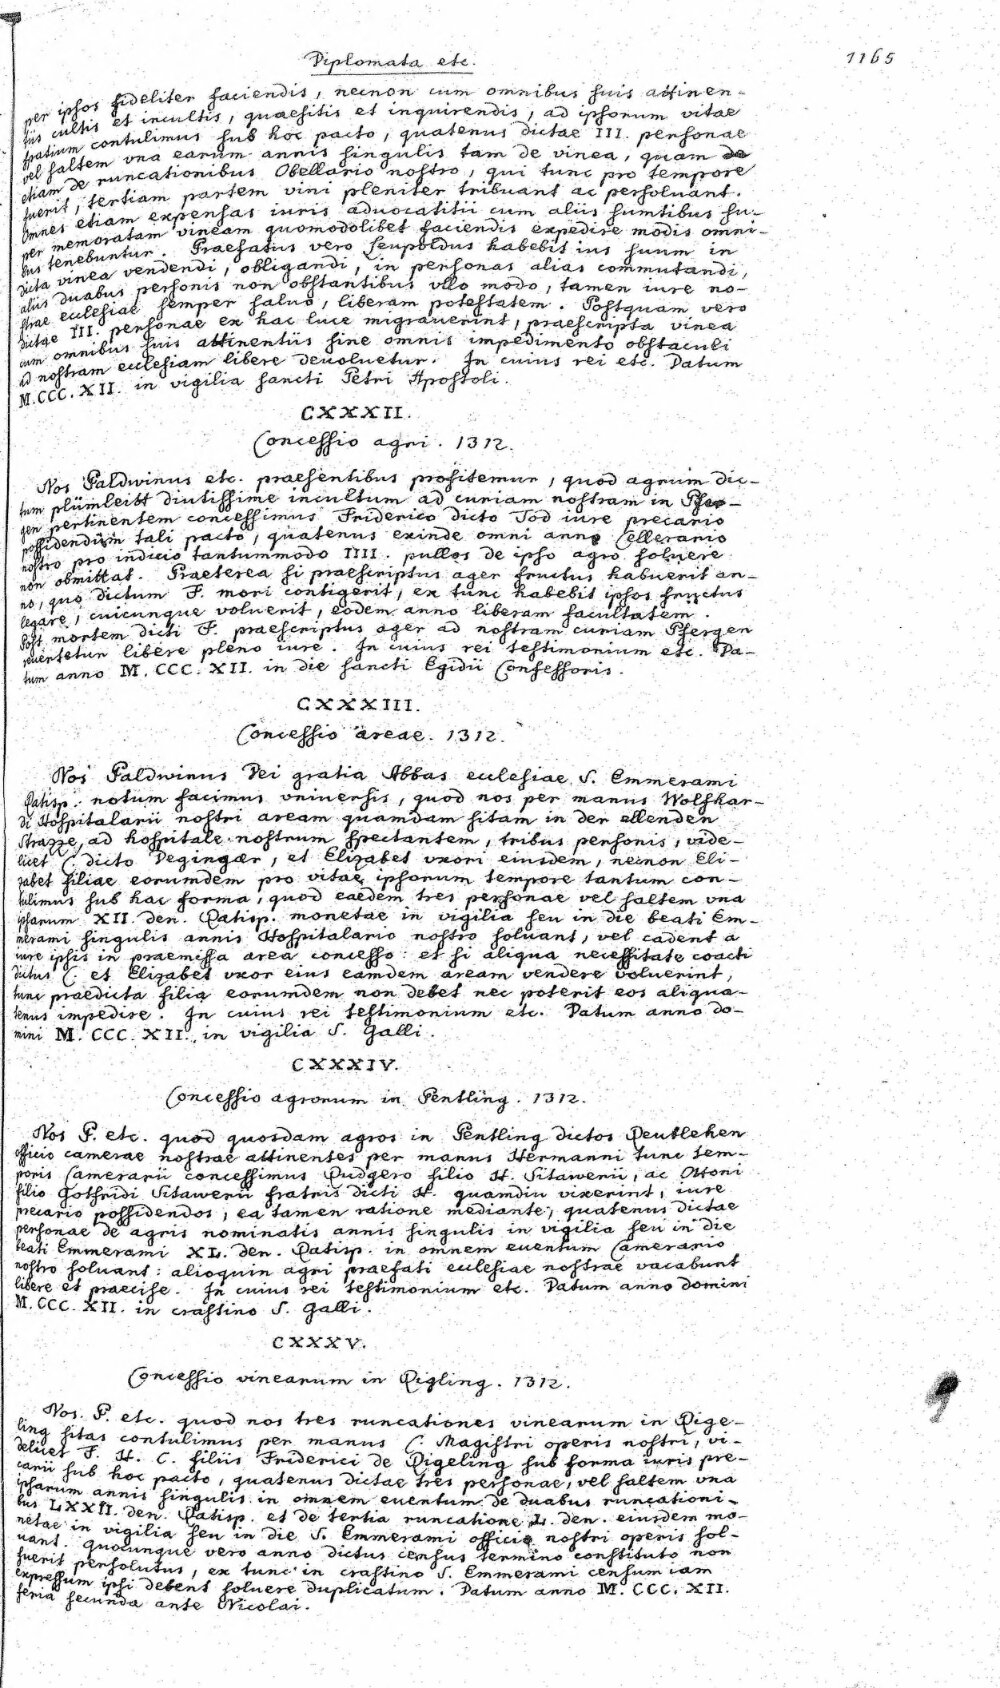 Diplomata etc.
1165
per ipsos fideliter faciendis, necnon cum omnibus suis attinen-
tiis cultis et incultis, quaesitis et inquirendis, ad ipsorum vitae
spatium contulimus sub hoc pacto, quatenus dictae III. personae
vel saltem vna earum annis singulis tam de vinea, quam de
etiam de runcationibus Obellario nostro, qui tunc pro tempore
fuerit, tertiam partem vini pleniter tribuant ac persoluant.
Omnes etiam expensas iuris aduocatitii cum aliis sumtibus su-
per memoratam vineam quomodolibet faciendis expedire modis omni-
bus tenebuntur. Praefatus vero Leupoldus habebit ius suum in
dicta vinea vendendi, obligandi, in personas alias commutandi,
aliis duabus personis non obstantibus vllo modo, tamen iure no-
strae ecclesiae semper saluo, liberam potestatem. Postquam vero
dictae III. personae ex hac luce migrauerint, praescripta vinea
cum omnibus suis attinentiis sine omnis impedimento obstaculi
ad nostram ecclesiam libere deuoluetur. In cuius rei etc. Datum
M.CCC.XII. in vigilia sancti Petri Apostoli.
CXXXII.
Concessio agri. 1312.
Nos Baldwinus etc. praesentibus profitemur, quod agrum dic-
tum plümleitt diutissime incultum ad curiam nostram in Pfer-
gen pertinentem concessimus Friderico dicto Tod iure precario
possidendum tali pacto, quatenus exinde omni anno Cellerario
nostro pro indicio tantummodo IIII. pullos de ipso agro soluere
non obmittat. Praeterea si praescriptus ager fructus habuerit an-
no, quo dictum F. mori contigerit, ex tunc habebit ipsos fructus
legare, cuicunque voluerit, eodem anno liberam facultatem.
Post mortem dicti F. praescriptus ager ad nostram curiam Pfergen
reuertetur libere pleno iure. In cuius rei testimonium etc. Da-
tum anno M.CCC.XII. in die sancti Egidii Confessoris.
CXXXIII.
Concessio areae. 1312.
Nos Baldwinus Dei gratia Abbas ecclesiae S. Emmerami
Ratisp. notum facimus vniuersis, quod nos per manus Wolfhar-
di Hospitalarii nostri aream quamdam sitam in der ellenden
Strazze, ad hospitale nostrum spectantem, tribus personis, vide-
licet C. dicto Deginger, et Elizabet vxori eiusdem, necnon Eli-
zabet filiae eorumdem pro vitae ipsorum tempore tantum con-
tulimus sub hac forma, quod eaedem tres personae vel saltem vna
ipsarum XII. den. Ratisp. monetae in vigilia seu in die beati Em-
merami singulis annis Hospitalario nostro soluant, vel cadent a
iure ipsis in praemissa area concesso: et si aliqua necessitate coacti
dictus C. et Elizabet vxor eius eamdem aream vendere voluerint,
tunc praedicta filia eorumdem non debet nec poterit eos aliqua-
tenus impedire. In cuius rei testimonium etc. Datum anno do-
mini M.CCC.XII. in vigilia S. Galli.
CXXXIV.
Concessio agrorum in Pentling. 1312.
Nos B. etc. quod quosdam agros in Pentling dictos Reutlehen
officio camerae nostrae attinentes per manus Hermanni tunc tem-
poris Camerarii concessimus Rudgero filio H. Sitawerii, ac Ottoni
filio Gotfridi Sitawerii fratris dicti H. quamdiu vixerint, iure
precario possidendos, ea tamen ratione mediante, quatenus dictae
personae de agris nominatis annis singulis in vigilia seu in die
beati Emmerami XL. den. Ratisp. in omnem euentum Camerario
nostro soluant: alioquin agri praefati ecclesiae nostrae vacabunt
libere et praecise. In cuius rei testimonium etc. Datum anno domini
M.CCC.XII. in crastino S. Galli.
CXXXV.
Concessio vinearum in Rigling. 1312.
Nos. B. etc. quod nos tres runcationes vinearum in Rige-
ling sitas contulimus per manus C. Magistri operis nostri, vi-
delicet F. H. C. filiis Friderici de Rigeling sub forma iuris pre-
carii sub hoc pacto, quatenus dictae tres personae, vel saltem vna
ipsarum annis singulis in omnem euentum de duabus runcationi-
bus LXXII. den. Ratisp. et de tertia runcatione L. den. eiusdem mo-
netae in vigilia seu in die S. Emmerami officio nostri operis sol-
uant. quocunque vero anno dictus census termino constituto non
fuerit persolutus, ex tunc in crastino S. Emmerami censum iam
expressum ipsi debent soluere duplicatum. Datum anno M.CCC.XII.
feria secunda ante Nicolai.